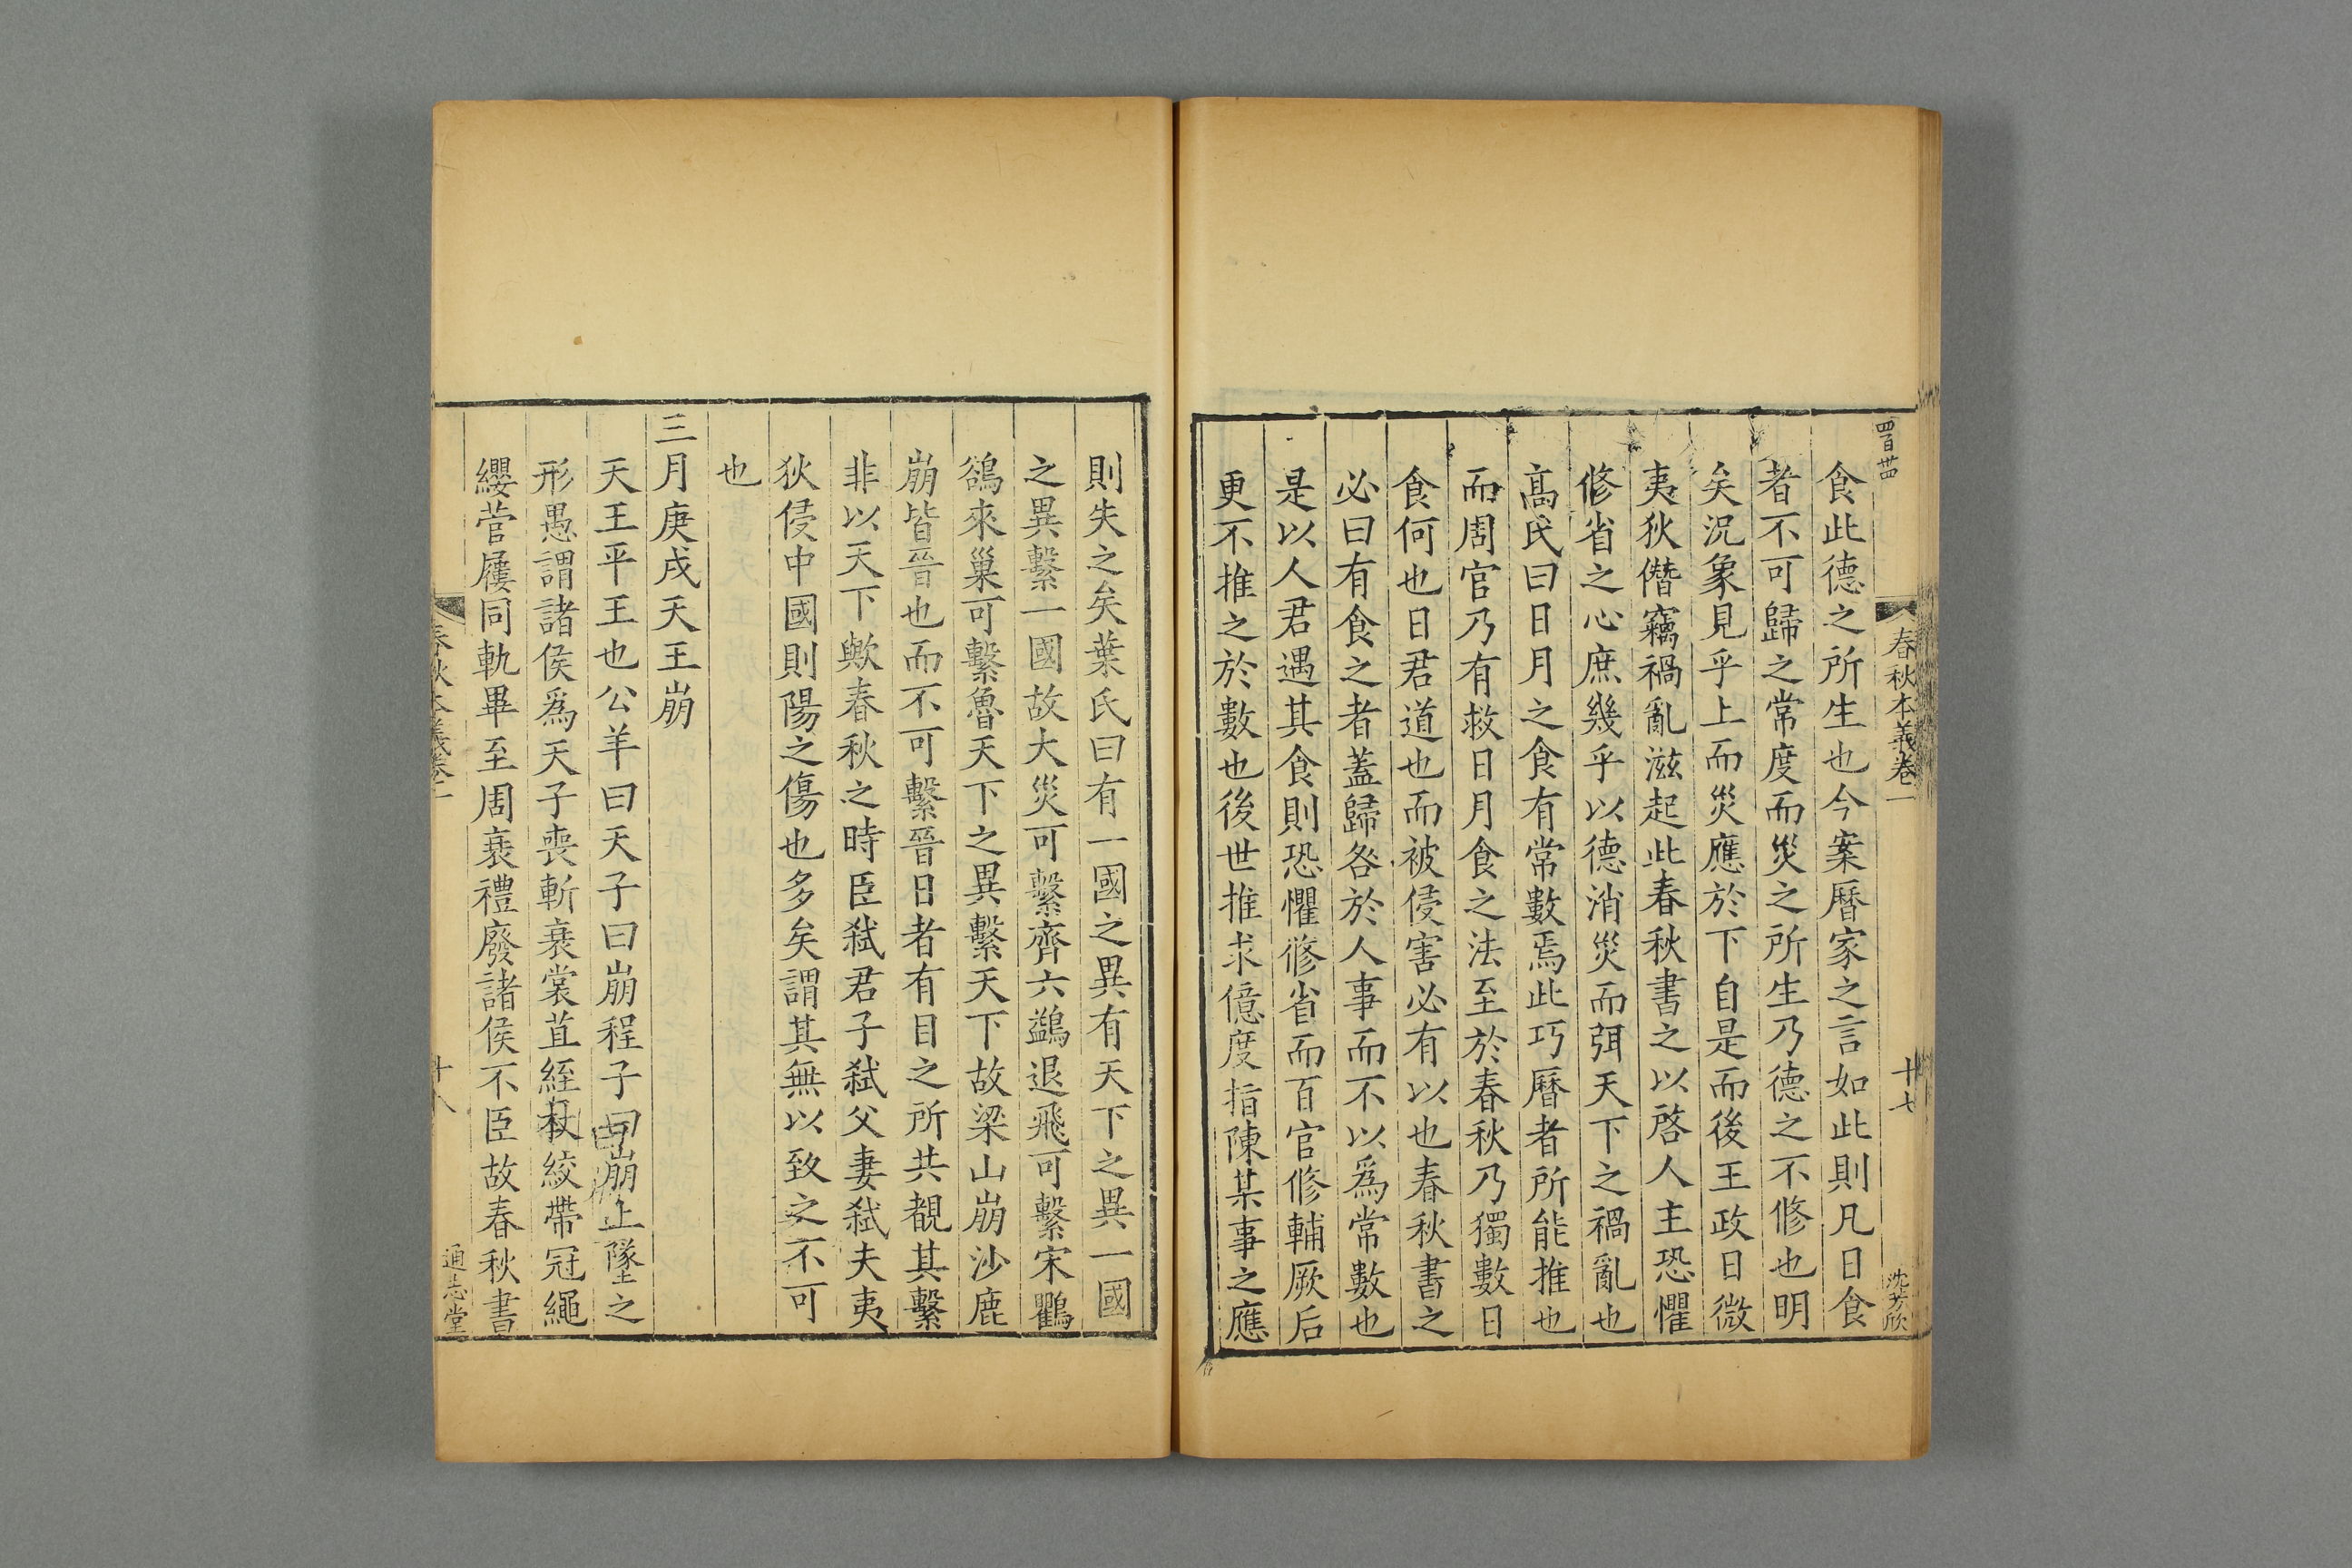 四百廿四
春秋本義卷一
十七
沈芳欣
食此德之所生也今案曆家之言如此則凡日食
者不可歸之常度而災之所生乃德之不修也明
矣況象見乎上而災應於下自是而後王政日微
夷狄僭竊禍亂滋起此春秋書之以啓人主恐懼
修省之心庶幾乎以德消災而弭天下之禍亂也
髙氏曰日月之食有常數焉此巧曆者所能推也
而周官乃有救日月食之法至於春秋乃獨數日
食何也日君道也而被侵害必有以也春秋書之
必曰有食之者蓋歸咎於人事而不以爲常數也
是以人君遇其食則恐懼修省而百官修輔厥后
更不推之於數也後世推求億度指陳某事之應
則失之矣葉氏曰有一國之異有天下之異一國
之異繫一國故大災可繫齊六鷁退飛可繫宋鸜
鵒來巢可繫魯天下之異繫天下故梁山崩沙鹿
崩皆晉也而不可繫晉日者有目之所共覩其繫
非以天下歟春秋之時臣弑君子弑父妻弑夫夷
狄侵中國則陽之傷也多矣謂其無以致之不可
也
三月庚戌天王崩
天王平王也公羊曰天子曰崩程子曰崩上墜之
形愚謂諸侯爲天子喪斬衰裳苴絰杖絞帶冠繩
纓菅屨同軌畢至周衰禮廢諸侯不臣故春秋書
春秋本義卷一
十八
通志堂